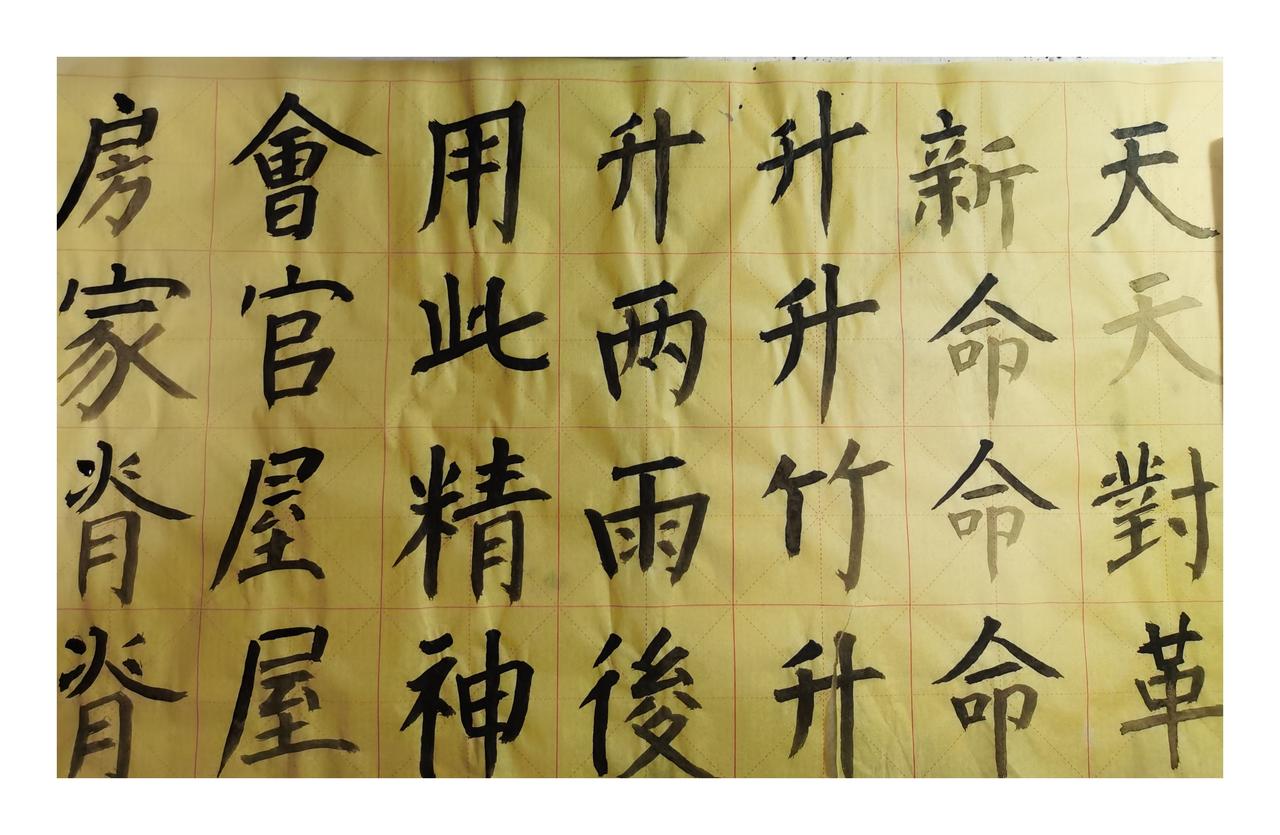 天天對革
新命命命
升升竹升
升两雨後
用此精神
會官屋屋
房家脊脊